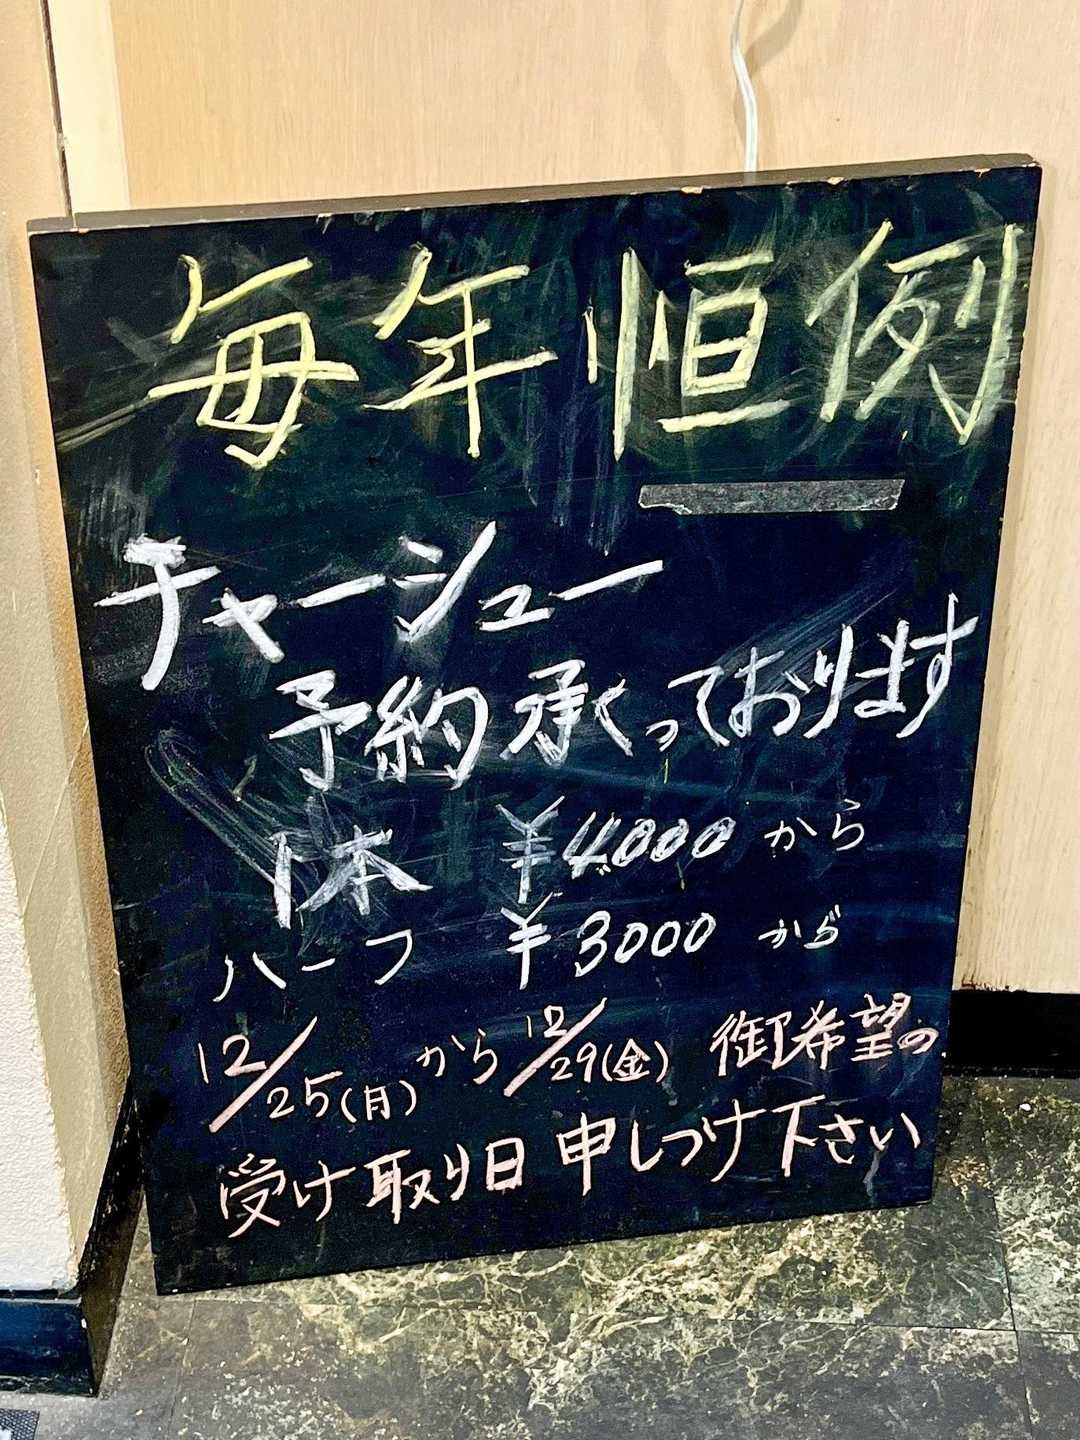 毎年恒例
チャーシュー
予約承くっております
1本 ¥4000から
ハーフ ¥3000から
12/25(月)から12/29(金) 御希望の
受け取り日申しつけ下さい